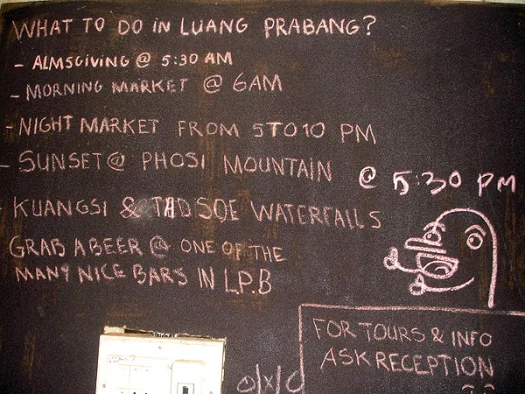 WHAT TO DO IN LUANG PRABANG?
- ALMSGIVING @ 5:30 AM
- MORNING MARKET @ 6AM
- NIGHT MARKET FROM 5TO10 PM
- SUNSET @ PHOSI MOUNTAIN @ 5:30 PM
KUANGSI & TADSOE WATERFAILS
GRAB A BEER @ ONE OF THE
MANY NICE BARS IN L.P.B
FOR TOURS & INFO
ASK RECEPTION